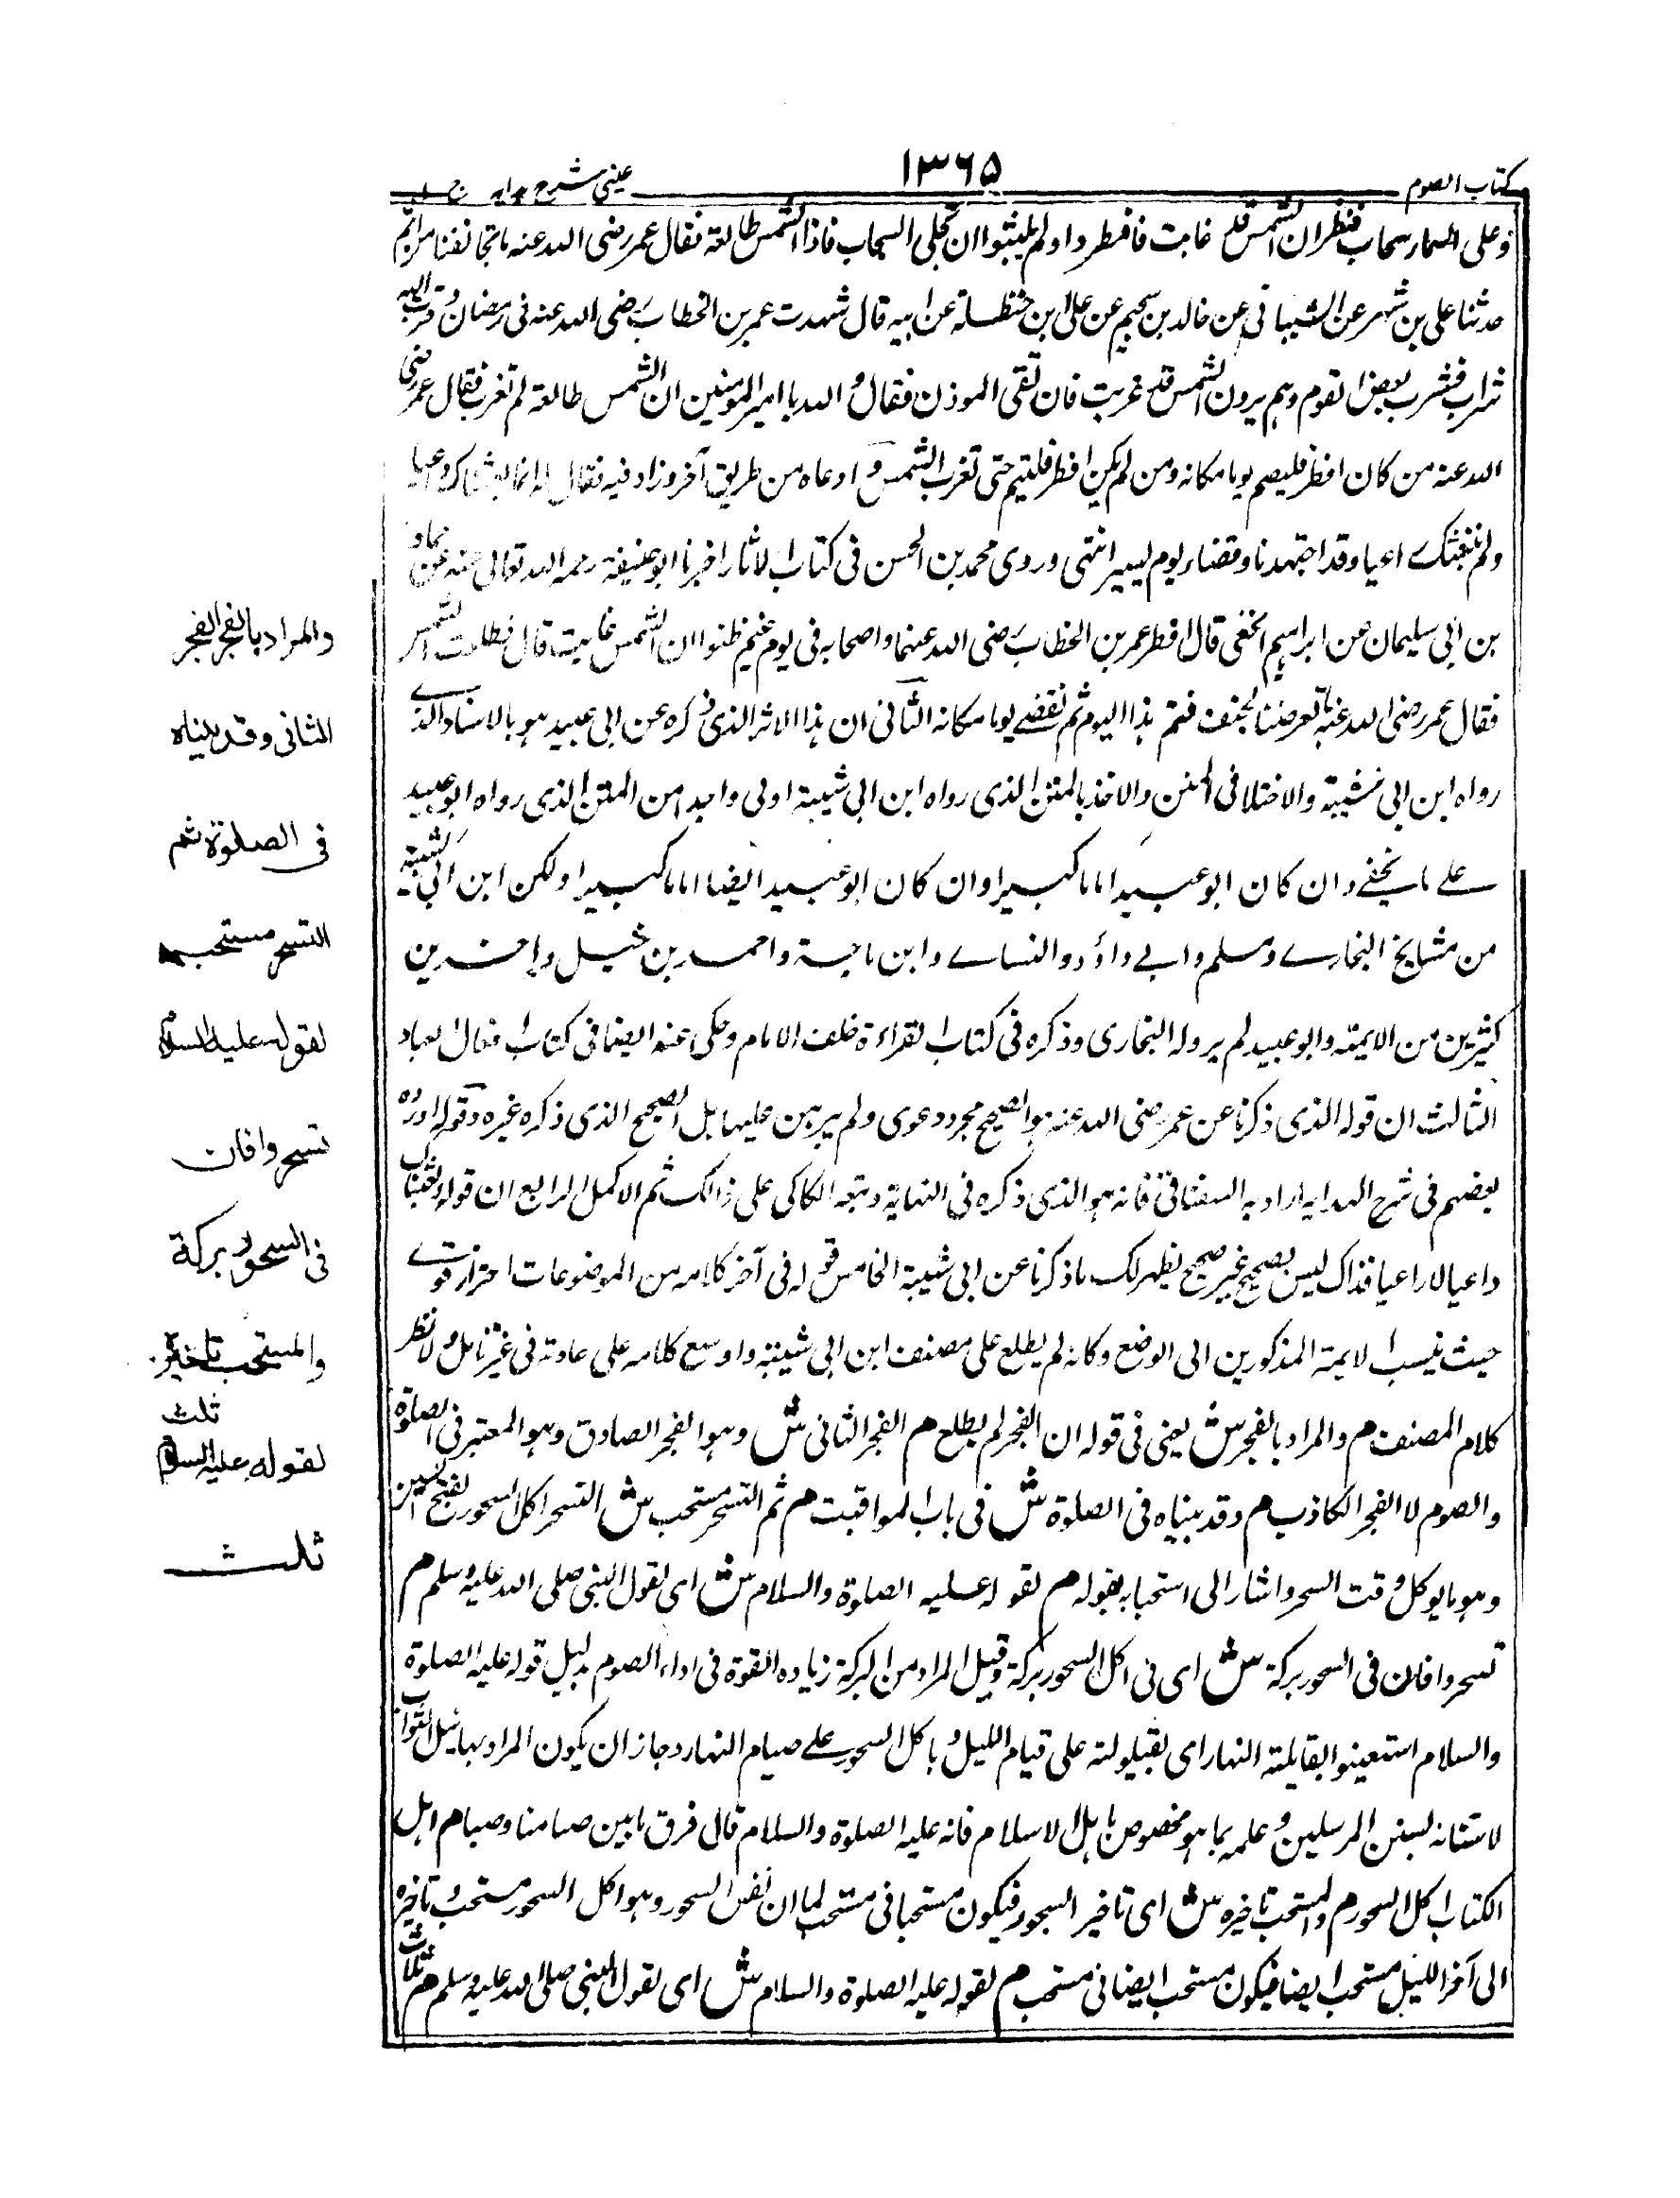 كتاب الصوم
١٣٦٥
عينى شرح هدايه ج ١
وعلى السماء سحاب فنظر ان الشمس قد غابت فافطروا ولم يلبثوا ان تجلى السحاب فاذا الشمس طالعة فقال عمر رضى الله عنه ما تجانفنا من اثم
حدثنا على بن مسهر عن الشيبانى عن خالد بن سحيم عن على بن حنظلة عن ابيه قال شهدت عمر بن الخطاب رضى الله عنه فى رمضان وقرب اليه
شراب فشرب بعض القوم وهم يرون الشمس قد غربت فان تقى الموذن فقال والله يا امير المومنين ان الشمس طالعة لم تغرب فقال عمر رضى
الله عنه من كان افطر فليصم يوما مكانه ومن لم يكن افطر فليتم حتى تغرب الشمس و ادعاه من طريق آخر وزاد فيه فقال له انما بعثناك داعيا
ولم نبعثك راعيا وقد اجتهدنا وقضاء يوم يسير انتهى وروى محمد بن الحسن فى كتاب الاثار اخبرنا ابو حنيفة رحمه الله تعالى عنه عن حماد
بن ابى سليمان عن ابراهيم النخعى قال افطر عمر بن الخطاب رضى الله عنهما واصحابه فى يوم غيم ظنوا ان الشمس غابت قال فطلعت الشمس
فقال عمر رضى الله عنه ما تعرضنا لجنف فنتم هذا اليوم ثم نقضے يوما مكانه الثانى ان هذا الاثر الذى ذكره عن ابى عبيد هو بالاسناد الذے
رواه ابن ابى شيبة والاختلا فى المتن والاخذ بالمتن الذى رواه ابن ابى شيبة اولى واجد من المتن الذى رواه ابو عبيد
علے ما يخفے وان كان ابو عبيد اماما كبيرا وان كان ابو عبيد ايضا اماما كبيرا ولكن ابن ابى شيبة
من مشايخ البخارے ومسلم وابے داؤد والنساے وابن ماجة واحمد بن حنبل وإخرين
كثيرين من الايمته وابو عبيد لم يرو له البخارى وذكره فى كتاب القراءة خلف الامام وحكى عنه ايضا فى كتاب افعال العباد
الثالث ان قوله الذى ذكرنا عن عمر رضى الله عنه هو الصحيح مجرد دعوى ولم يبرهن عليها بل الصحيح الذى ذكره غيره وقوله اورده
بعضهم فى شرح الهدايه اراد به السغناقى فانه هو الذى ذكره فى النهاية وتبعه الكاكى على ذالك ثم الاكمل الرابع ان قوله بعثناك
داعيا لا راعيا فذاك ليس بصحيح غير صحيح يظهر لك ما ذكرنا عن ابى شيبة الخامس قوله فى آخر كلامه من الموضوعات احتراز فوے
حيث نيسب الايمة المذكورين الى الوضع وكانه لم يطلع على مصنف ابن ابى شيبة واوسع كلامه على عادته فى غير تامل ولا نظر
كلام المصنف م والمراد بالفجر ش يعنى فى قوله ان الفجر لم يطلع م الفجر الثانى ش وهو الفجر الصادق وهو المعتبر فى الصلوة
والصوم لا الفجر الكاذب م وقد بيناه فى الصلوة ش فى باب المواقيت م ثم التسحر مستحب ش التسحر اكل السحور بفتح السين
وهو ما يوكل وقت السحر واشار الى استحبابه بقوله م لقوله عليه الصلوة والسلام ش اى لقول النبى صلى الله عليه وسلم م
تسحروا فان فى السحور بركة ش اى فى اكل السحور بركة وقيل المراد من البركة زياده القوة فى اداء الصوم بدليل قوله عليه الصلوة
والسلام استعينوا بقايلته النهار اى بقيلولته على قيام الليل و باكل السحور علے صيام النهار وجاز ان يكون المراد بها نيل الثواب
لاستنانه لسنن المرسلين و علمه بما هو مخصوص باهل الاسلام فانه عليه الصلوة والسلام قال فرق ما بين صيامنا وصيام اهل
الكتاب اكل السحور م والمستحب تاخيره ش اى تاخير السحور فيكون مستحبا فى مستحب لما ان نفس السحور وهو اكل السحور مستحب وتاخيره
الى آخر الليل مستحب ايضا فيكون مستحب ايضا فى مستحب م لقوله عليه الصلوة والسلام ش اى لقول النبى صلى الله عليه وسلم م ثلاث
والمراد بالفجر الفجر
الثانى وقد بيناه
فى الصلوة ثم
التسحر مستحب
لقوله عليه السلام
تسحروا فان
فى السحور بركة
والمستحب تاخيره
ثلث
لقوله عليه السلام
ثلث